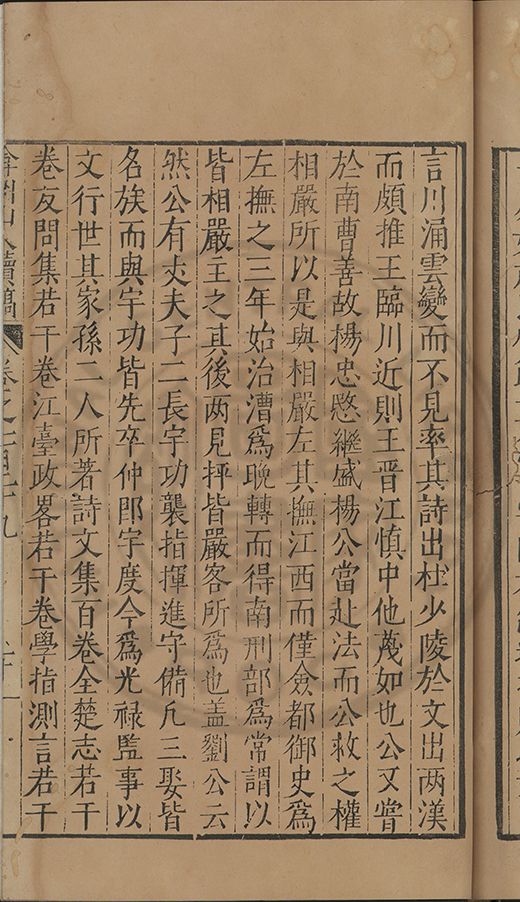 言川涌雲變而不見率其詩出杜少陵於文出两漢
而頗推王臨川近則王晋江慎中他蔑如也公又嘗
於南曹善故楊忠愍繼盛楊公當赴法而公救之權
相嚴所以是與相嚴左其撫江西而僅僉都御史爲
左撫之三年始治漕爲晚轉而得南刑部爲常謂以
皆相嚴主之其後两見抨皆嚴客所爲也盖劉公云
然公有丈夫子二長宇功襲指揮進守備凡三娶皆
名族而與宇功皆先卒仲即宇度今爲光禄監事以
文行世其家孫二人所著詩文集百卷全楚志若干
卷友問集若干卷江臺政畧若干卷學指測言若干
山人續稿 卷之一百